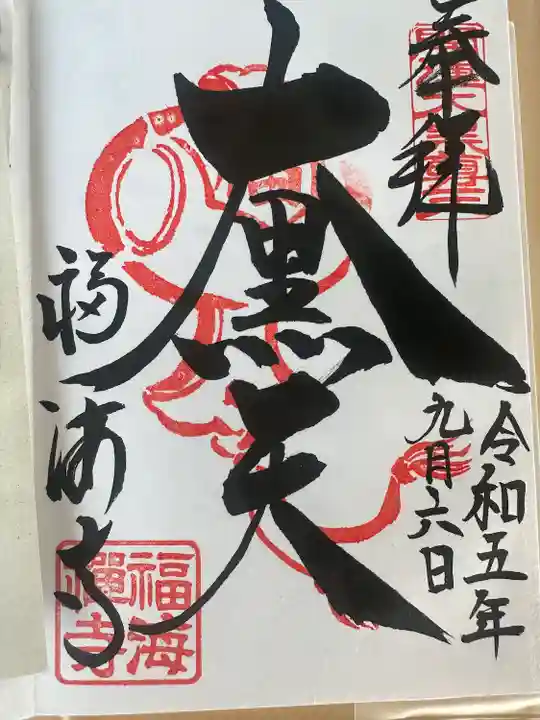 奉拝
大黒天
令和五年
九月六日
福海寺
福海禅寺